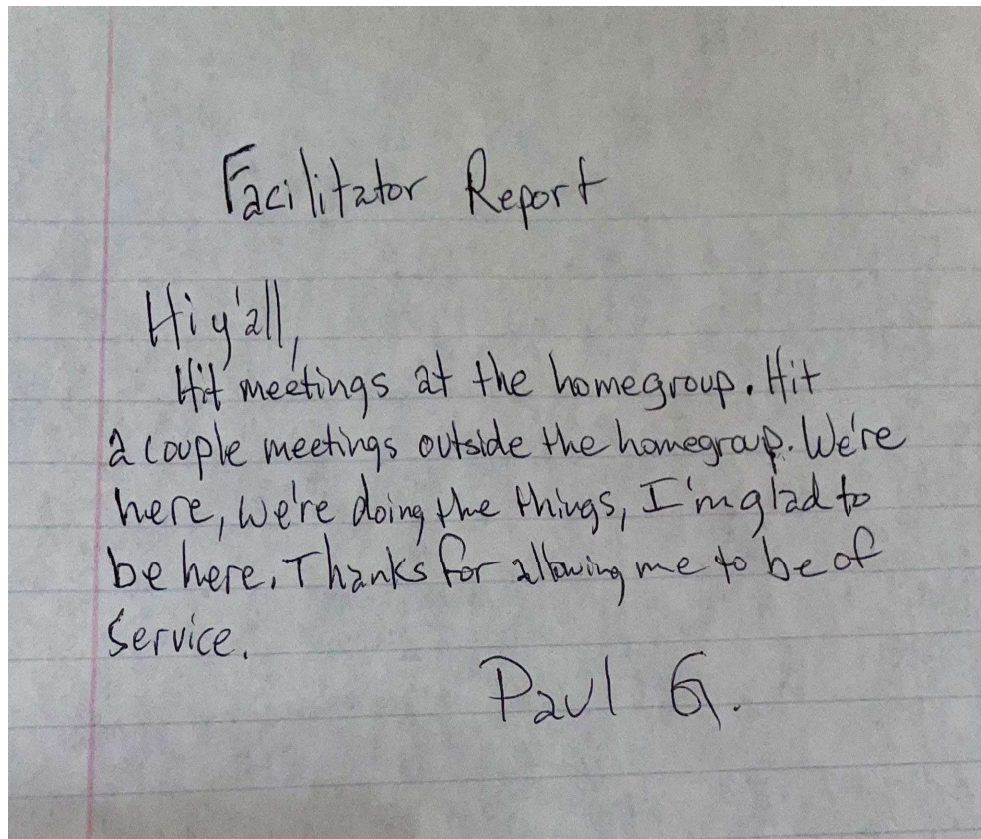 Facilitator Report
Hi y'all,
Hit meetings at the homegroup. Hit
a couple meetings outside the homegroup. We're
here, we're doing the things, I'm glad to
be here. Thanks for allowing me to be of
service.
Paul G.